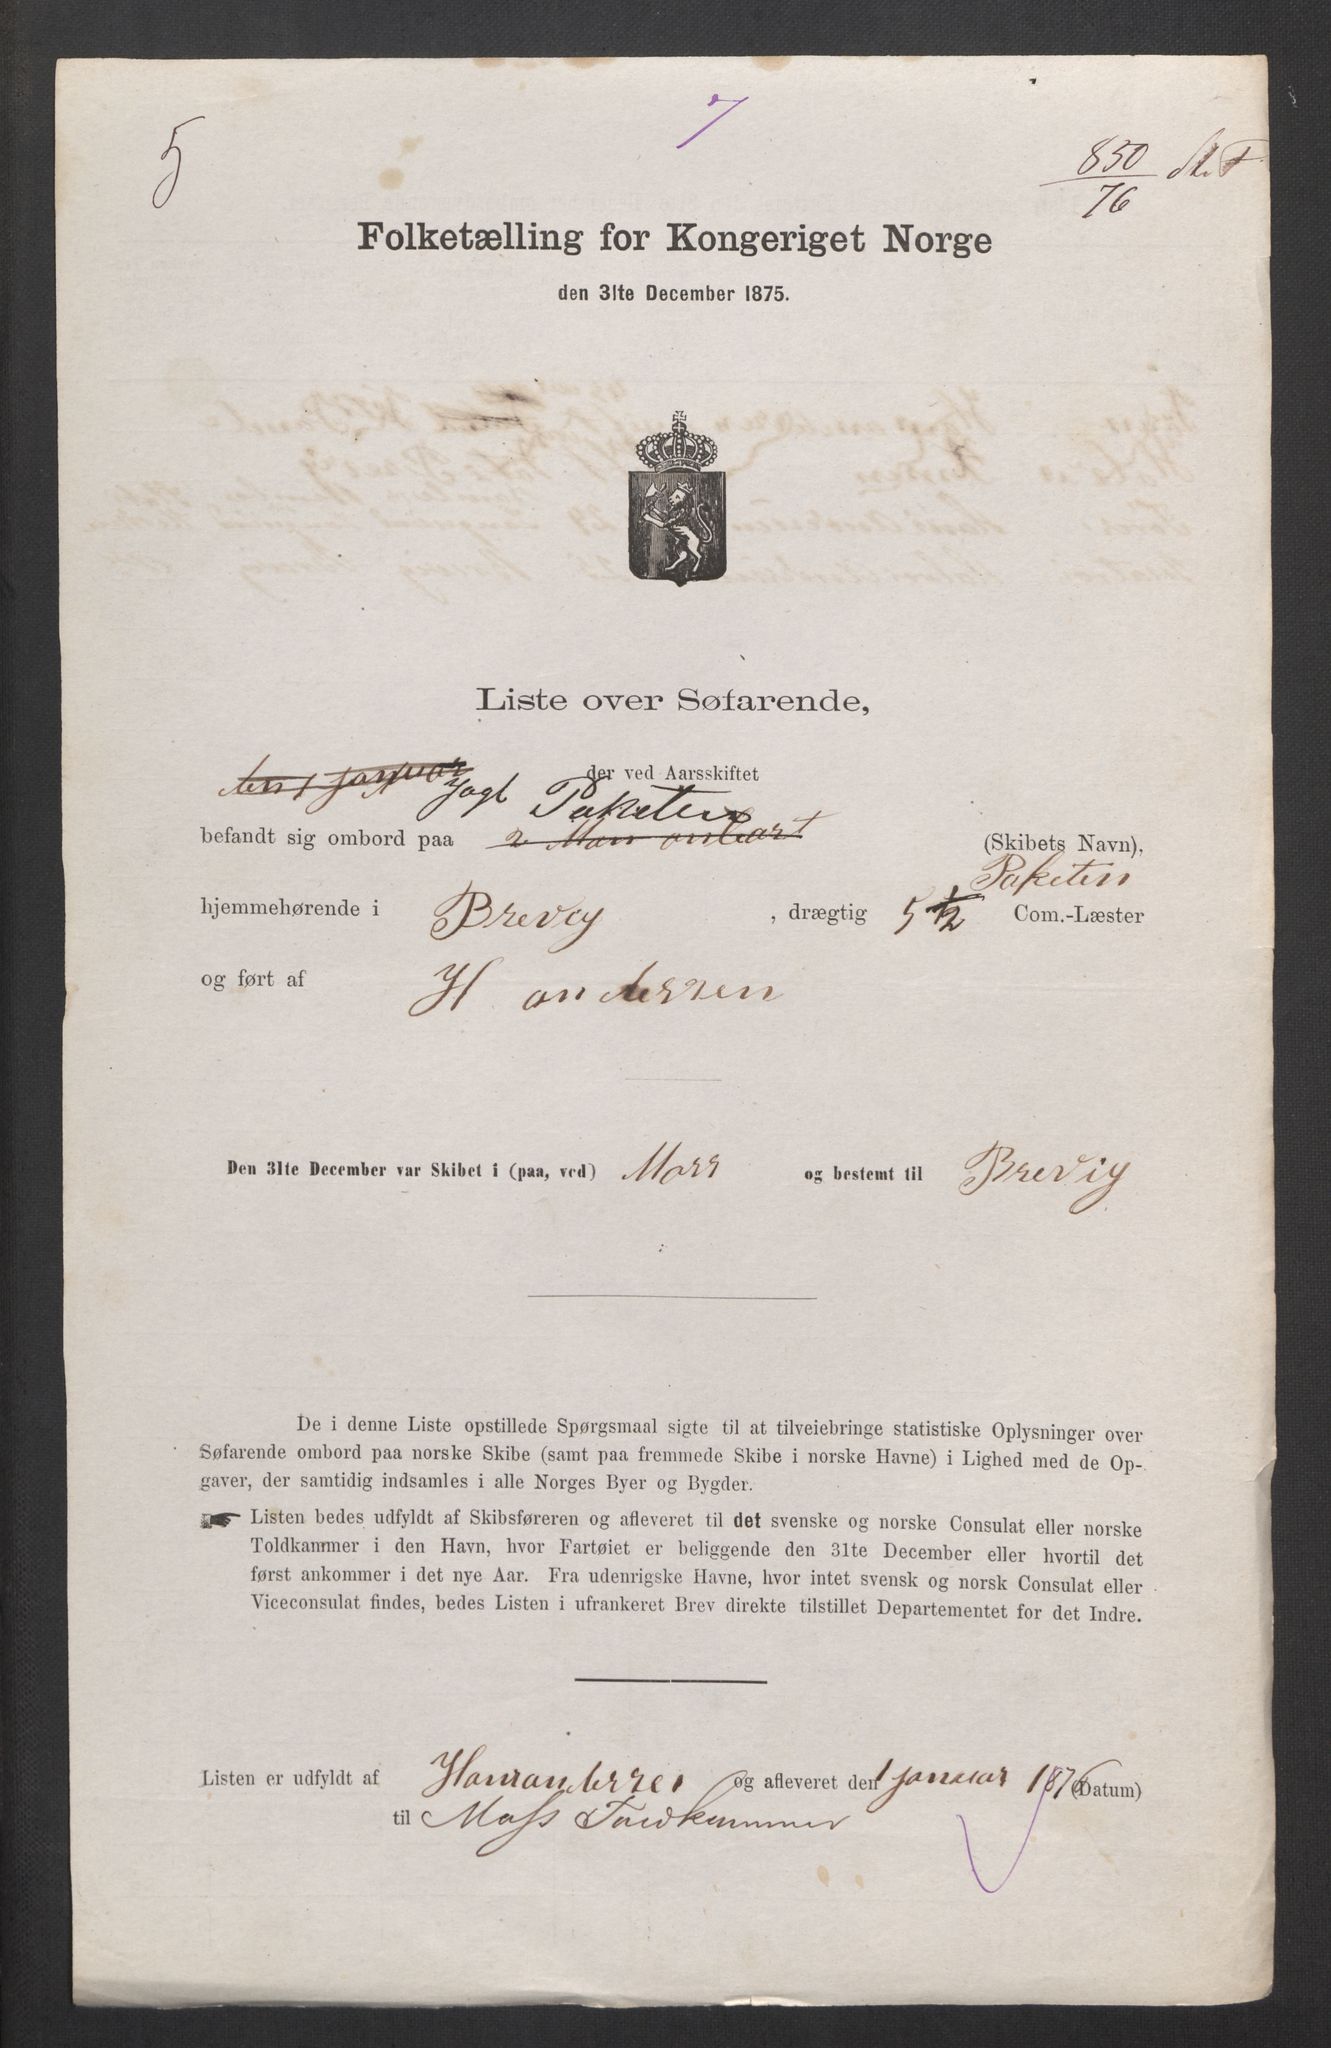 7
5
850
76
Folketælling for Kongeriget Norge
den 31te December 1875.
Liste over Søfarende,
den 1 januar
der ved Aarsskiftet
Jagt Paketen
befandt sig ombord paa 2 Man ombort (Skibets Navn),
Paketen
hjemmehørende i Brevig , drægtig 5 1/2 Com.-Læster
og ført af H andersen
Den 31te December var Skibet i (paa, ved) Moss og bestemt til Brevig
De i denne Liste opstillede Spørgsmaal sigte til at tilveiebringe statistiske Oplysninger over
Søfarende ombord paa norske Skibe (samt paa fremmede Skibe i norske Havne) i Lighed med de Op-
gaver, der samtidig indsamles i alle Norges Byer og Bygder.
Listen bedes udfyldt af Skibsføreren og afleveret til det svenske og norske Consulat eller norske
Toldkammer i den Havn, hvor Fartøiet er beliggende den 31te December eller hvortil det
først ankommer i det nye Aar. Fra udenrigske Havne, hvor intet svensk og norsk Consulat eller
Viceconsulat findes, bedes Listen i ufrankeret Brev direkte tilstillet Departementet for det Indre.
Listen er udfyldt af Hans andersen og afleveret den 1 januar 1876 (Datum)
til Moss Toldkammer